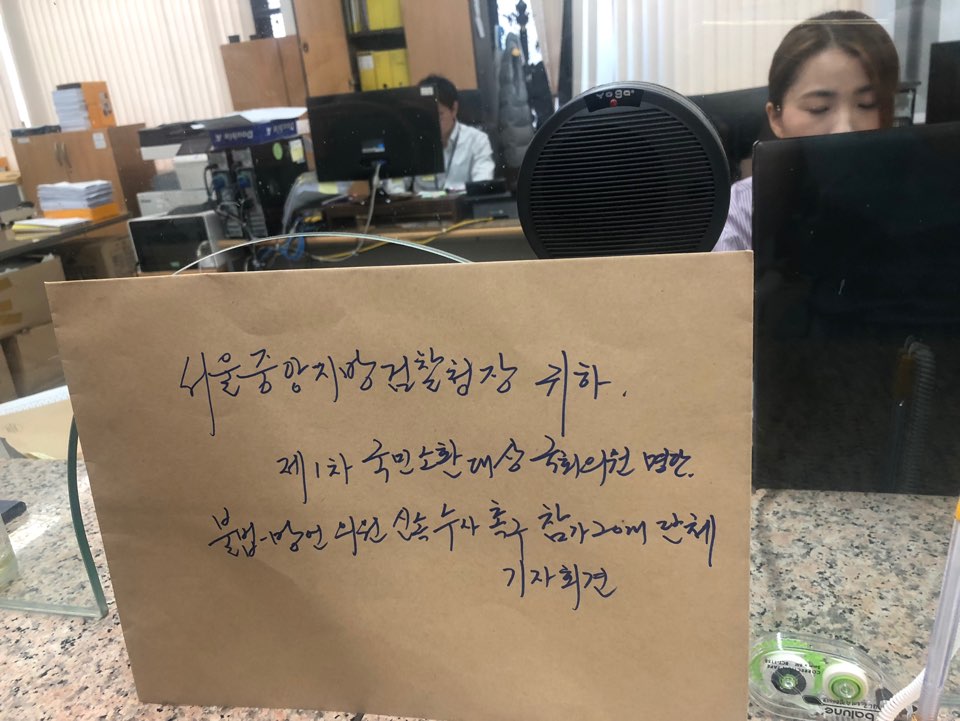 Double A
Yoga
서울중앙지방검찰청장 귀하.
제1차 국민소환대상 국회의원 명단.
불법-망언 의원 신속수사 촉구 참가20개 단체
기자회견
CORRECTION TAPE